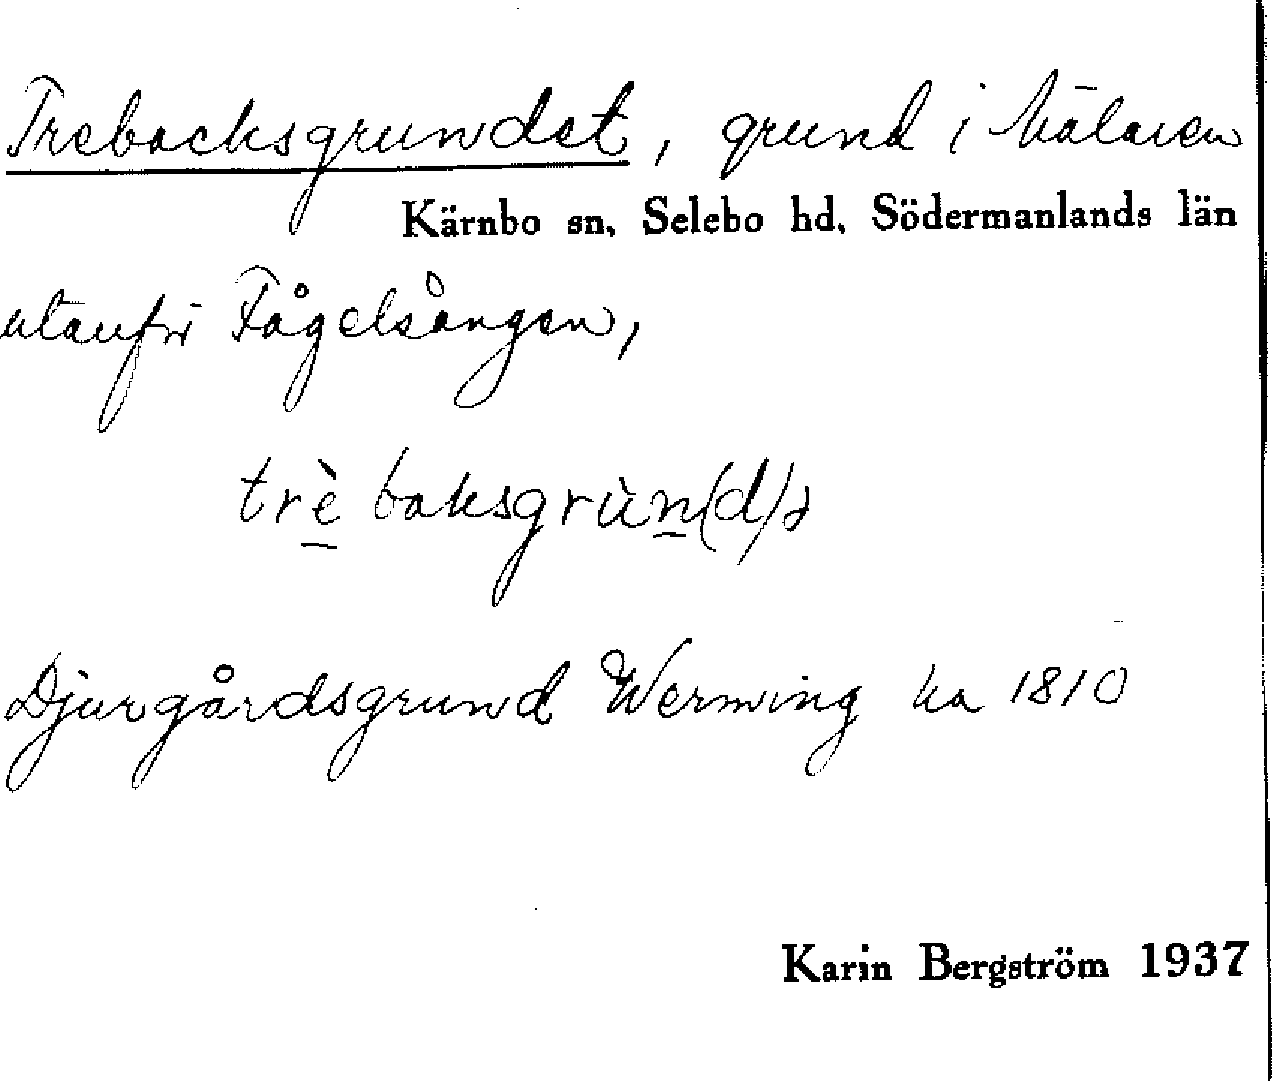 Trebacksgrundet, grund i Mälaren
Kärnbo sn, Selebo hd, Södermanlands län
utanför Fågelsången,
trè baksgrùn(d)ə
Djurgårdsgrund Werming ka 1810
Karin Bergström 1937